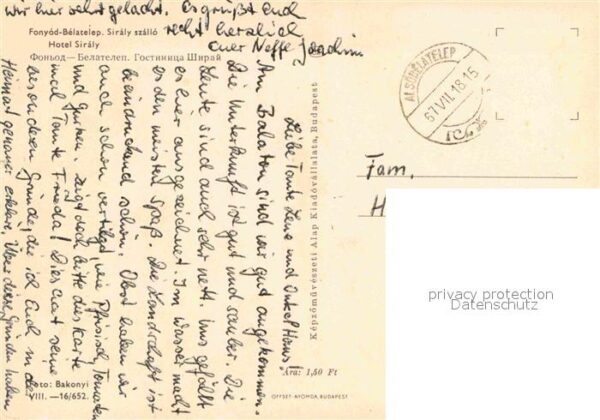 Fonyód-Bélatelep. Sirály szálló
Hotel Sirály
Фоньод—Белателеп. Гостиница Ширай
Liebe Tante Lene und Onkel Hans!
Am Balaton sind wir gut angekommen.
Die Unterkunft ist gut und sauber. Die
Leute sind auch sehr nett. Uns gefällt
es hier ausgezeichnet. Im Wasser macht
es den meisten Spaß. Die Landschaft ist
beeindruckend schön. Obst haben wir
auch schon vertilgt, wie Pfirsich, Tomaten
und Gurken. Zeigt doch bitte die Karte
mal Tante Frieda! Dies hat seine
besonderen Gründe, die ich Euch in der
Heimat genauer erkläre. Über diese Gründe haben
wir hier sehr gelacht. Es grüßt Euch
recht herzlich
euer Neffe Joachim
Foto: Bakonyi
VIII.—16/652.
Képzőművészeti Alap Kiadóvállalata, Budapest
Ára: 1,50 Ft
OFFSET-NYOMDA, BUDAPEST
ALSÓBÉLATELEP
67 VII. 18. 15
Fam.
H
privacy protection
Datenschutz